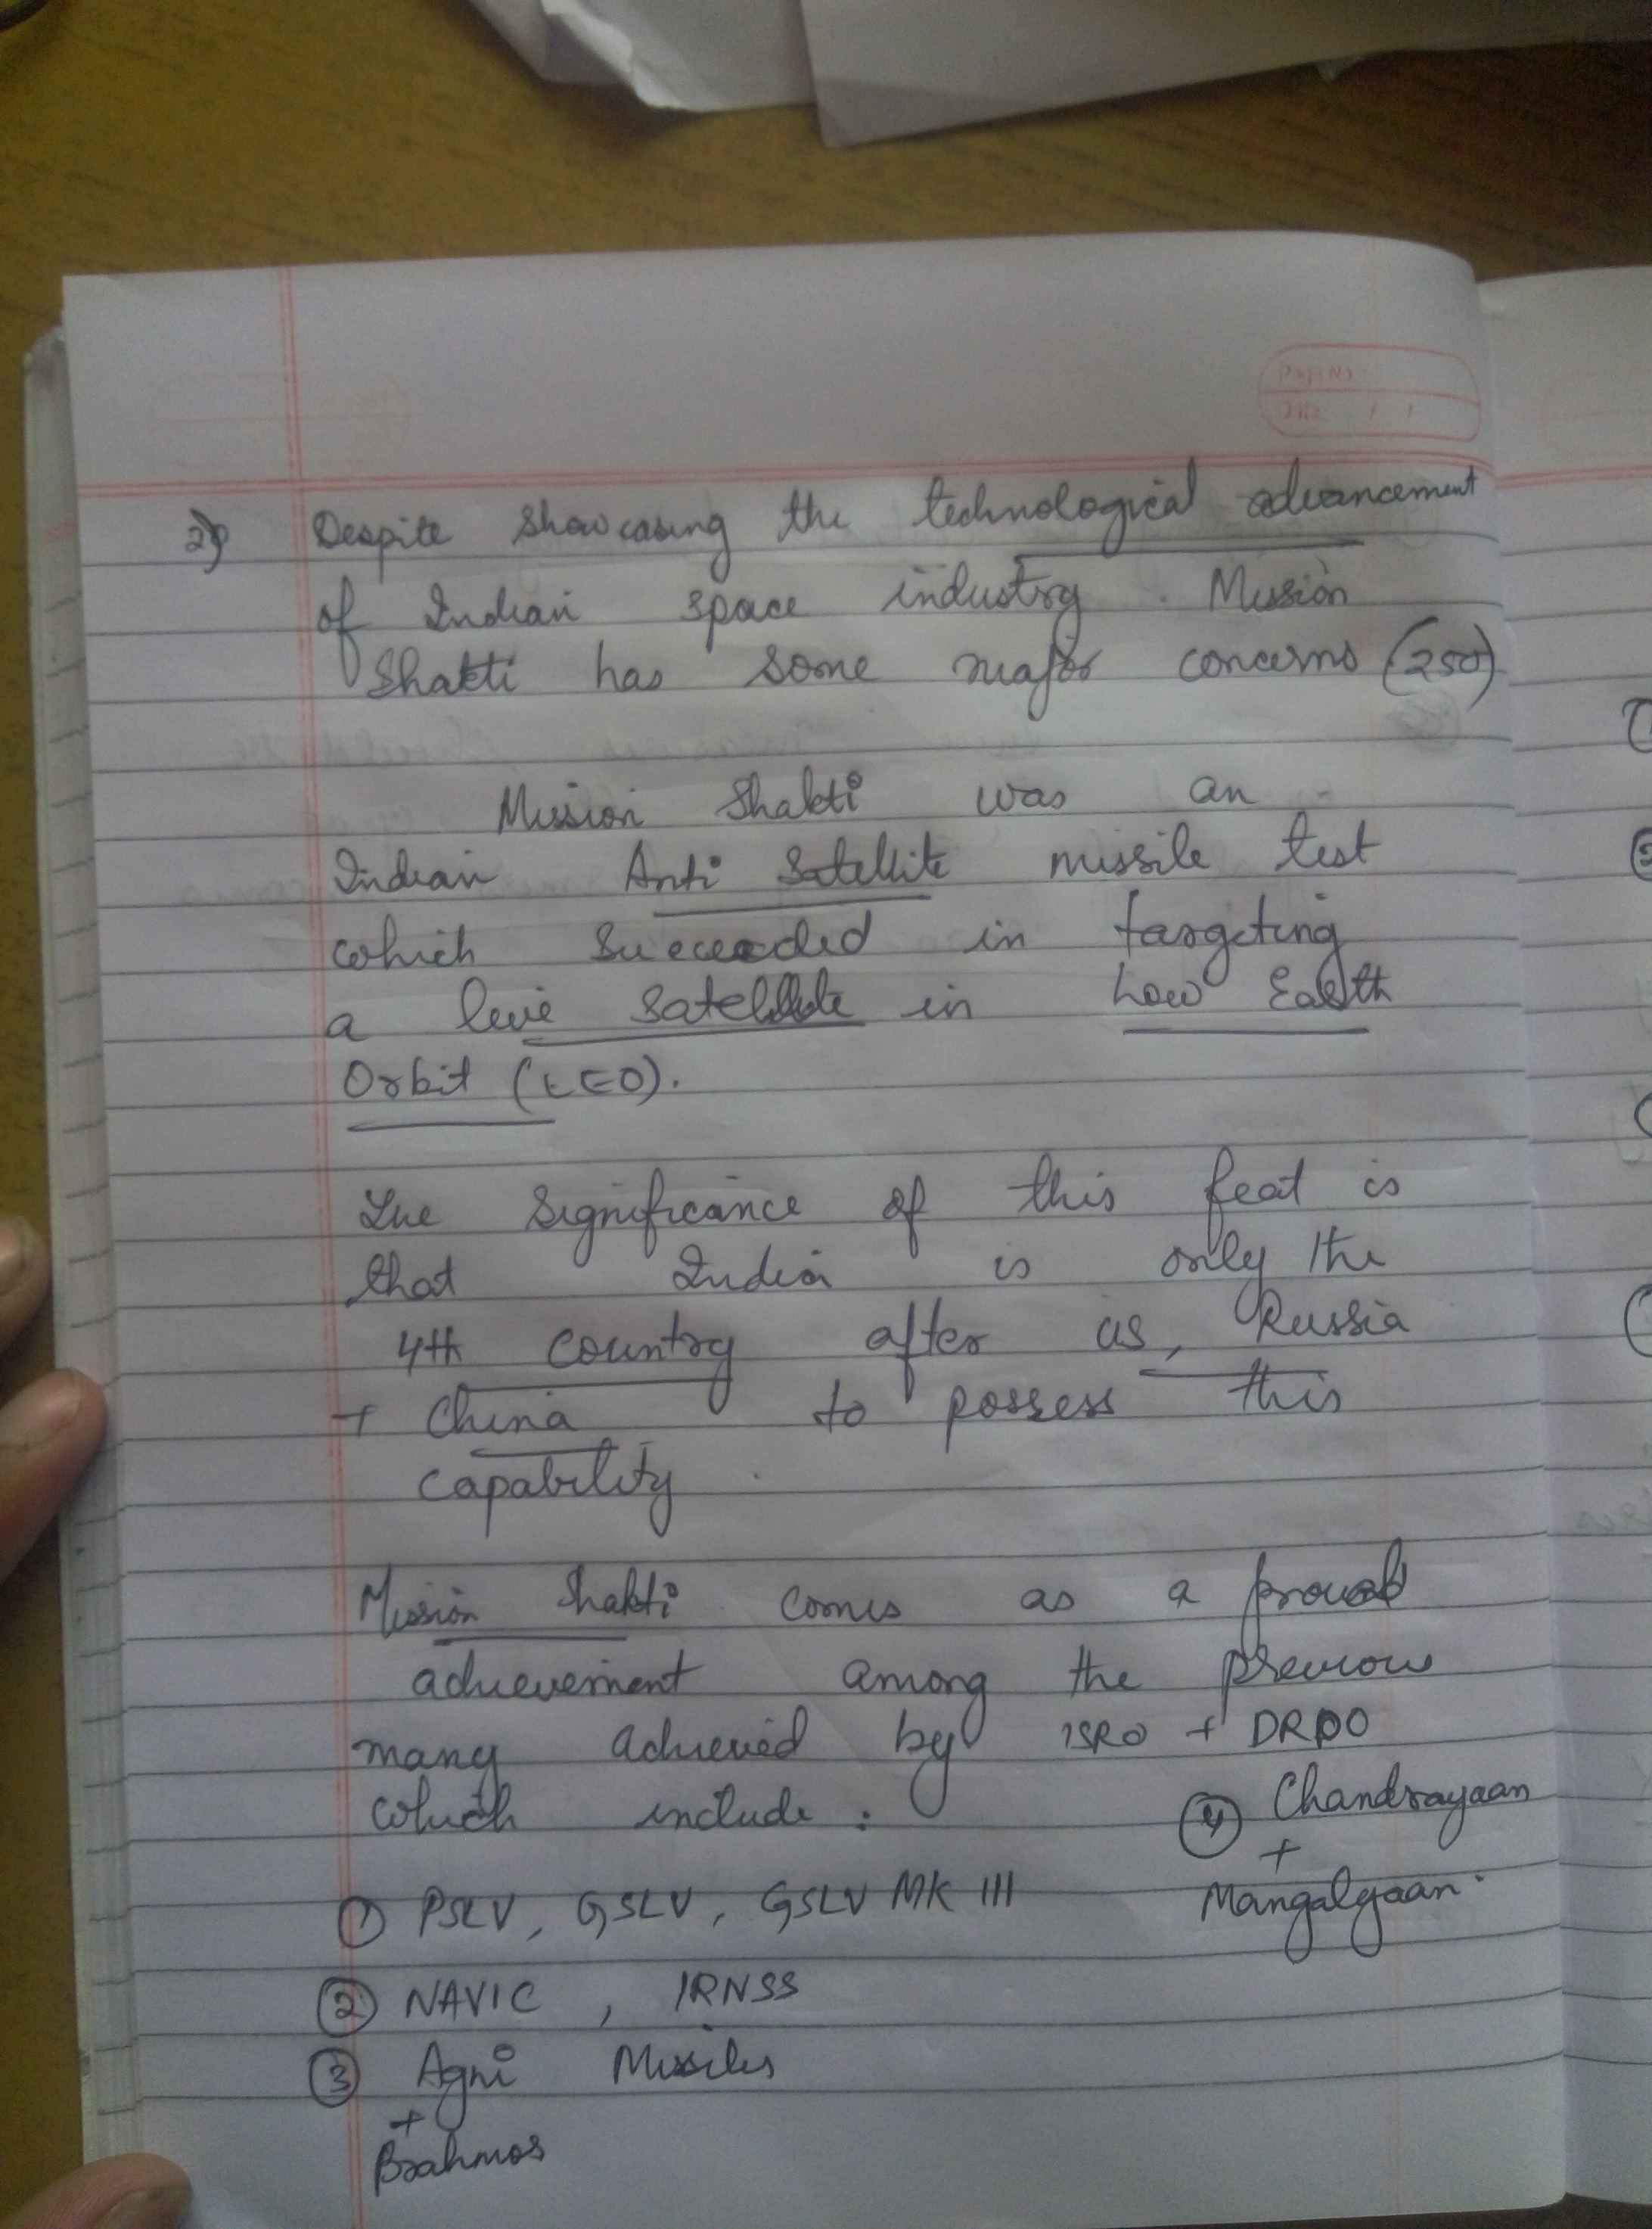 2) Despite showcasing the technological advancement
of Indian space industry. Mission
Shakti has some major concerns (250)
Mission Shakti was an
Indian Anti Satellite missile test
which succeeded in targeting
a live satellite in Low Earth
Orbit (LEO).
The significance of this feat is
that India is only the
4th country after US, Russia
+ China to possess this
capability.
Mission Shakti comes as a proud
achievement among the previous
many achieved by ISRO + DRDO
which include :
① PSLV, GSLV, GSLV MK III
② NAVIC, IRNSS
③ Agni Missiles
+
Brahmos
④ Chandrayaan
+
Mangalyaan.